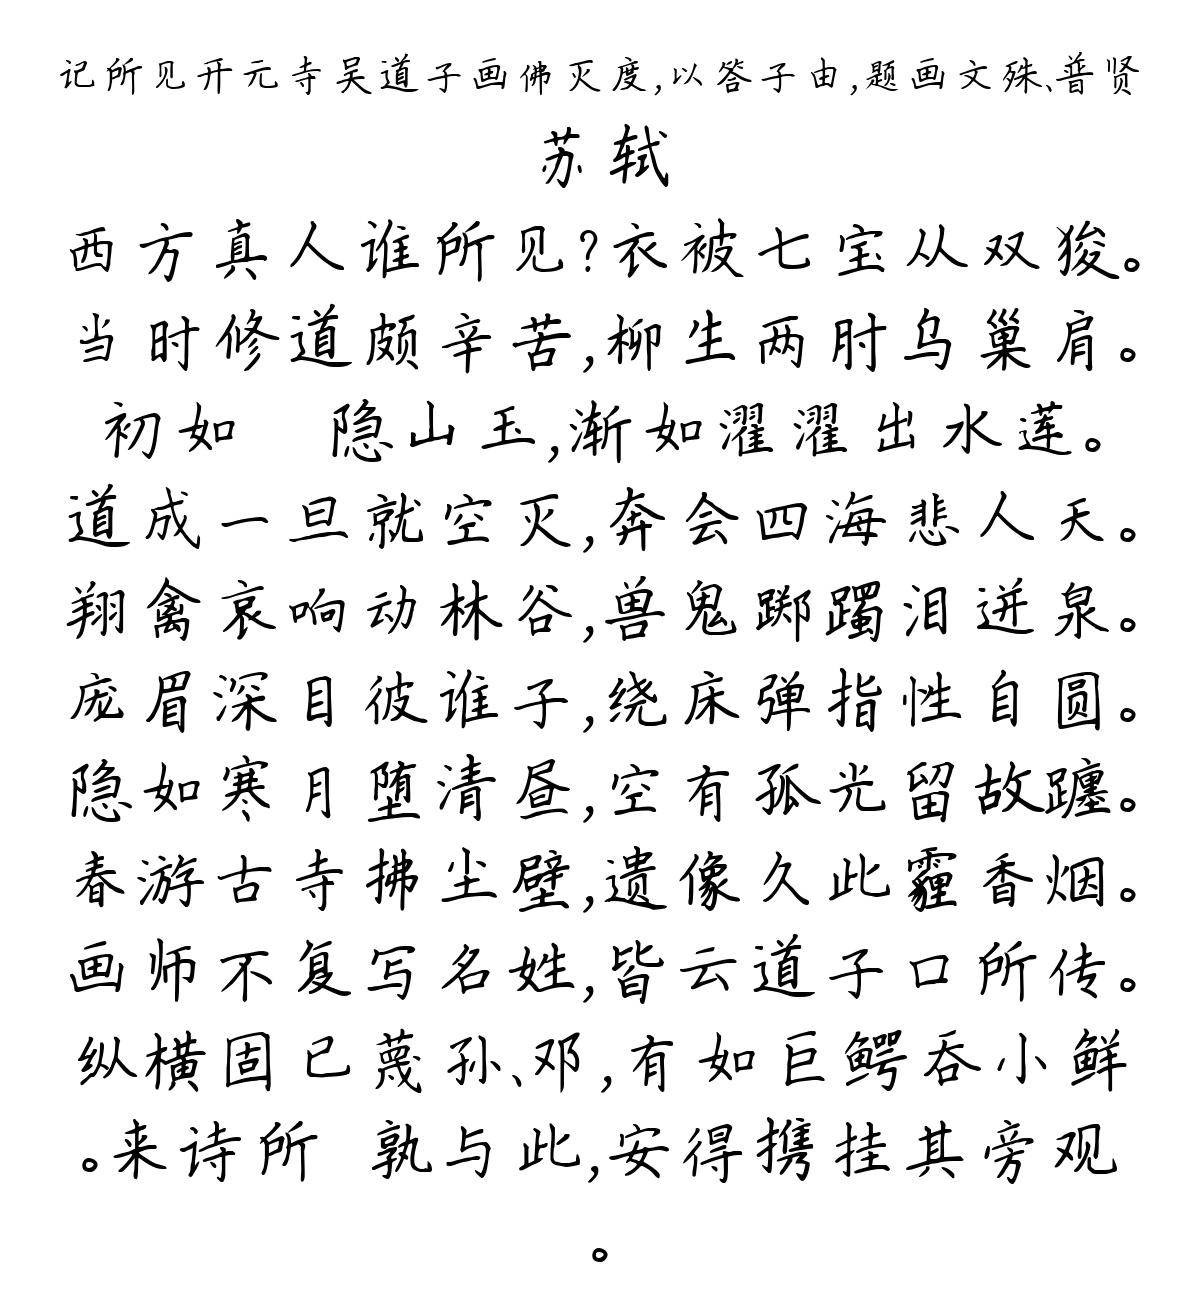 记所见开元寺吴道子画佛灭度,以答子由,题画文殊、普贤
苏轼
西方真人谁所见?衣被七宝从双狻。
当时修道颇辛苦,柳生两肘乌巢肩。
初如 隐山玉,渐如濯濯出水莲。
道成一旦就空灭,奔会四海悲人天。
翔禽哀响动林谷,兽鬼踯躅泪迸泉。
庞眉深目彼谁子,绕床弹指性自圆。
隐如寒月堕清昼,空有孤光留故躔。
春游古寺拂尘壁,遗像久此霾香烟。
画师不复写名姓,皆云道子口所传。
纵横固已蔑孙、邓,有如巨鳄吞小鲜
。来诗所 孰与此,安得携挂其旁观
。